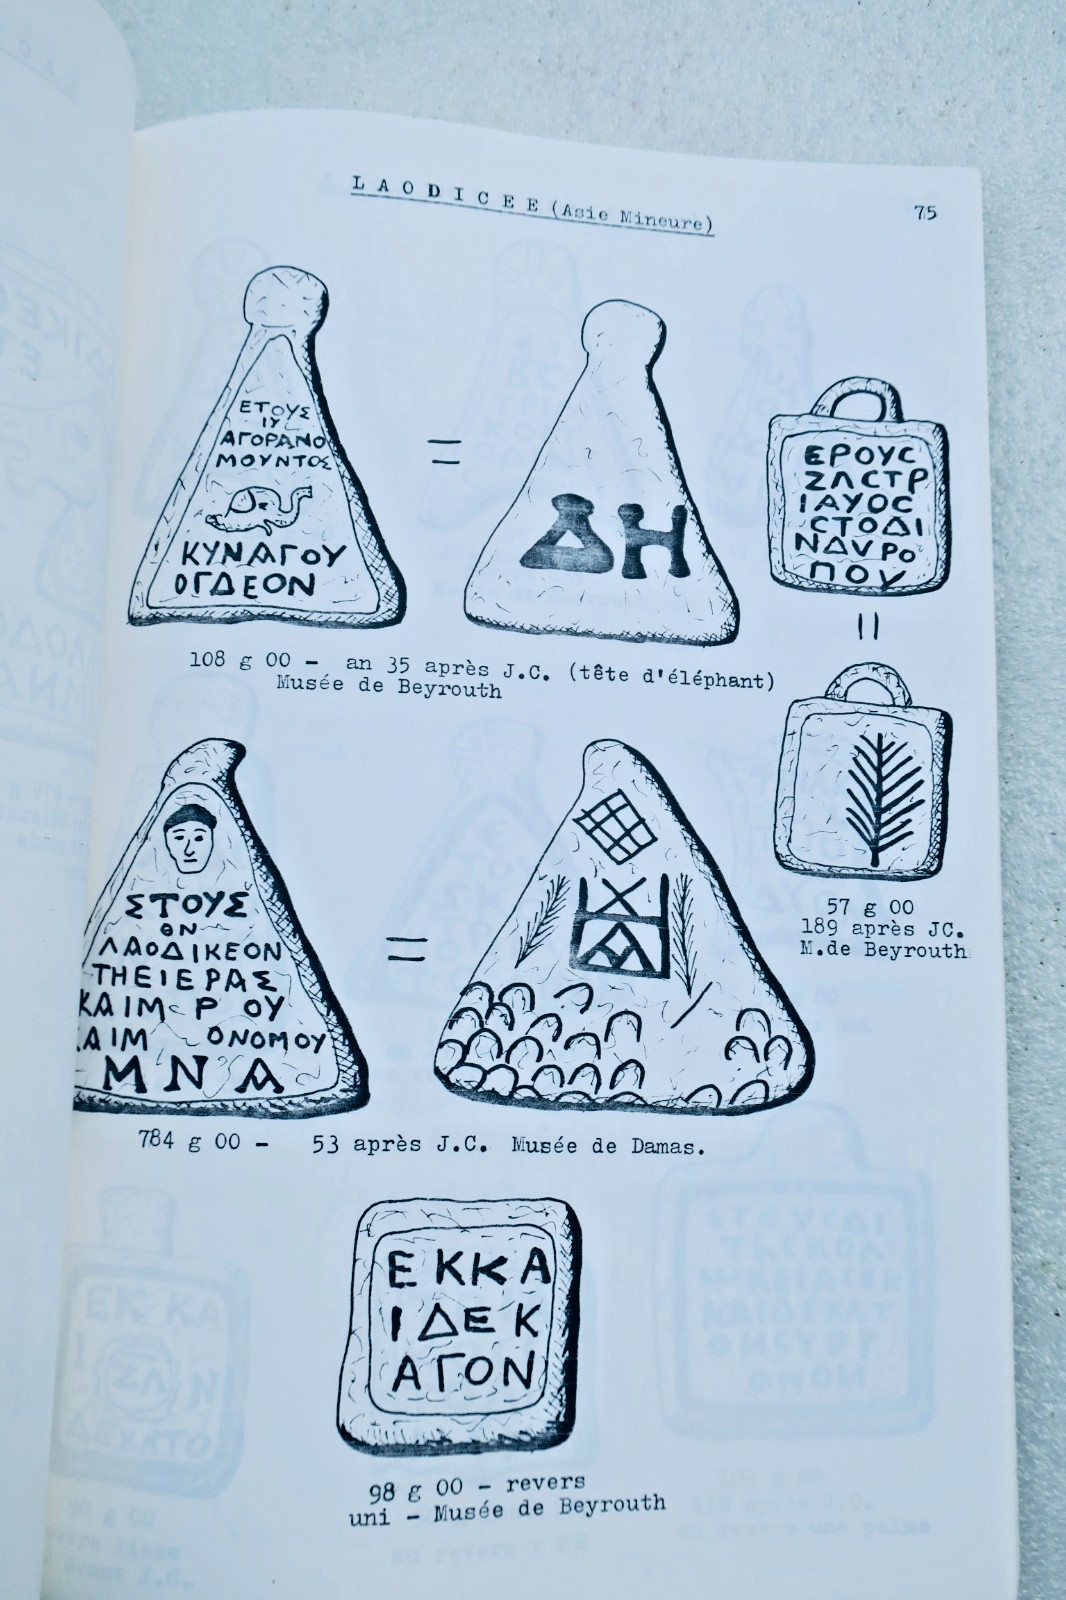 LAODICEE (Asie Mineure)
75
ΕΤΟΥΣ
ΙΥ
ΑΓΟΡΑΝΟ
ΜΟΥΝΤΟΣ
ΚΥΝΑΓΟΥ
ΟΓΔΕΟΝ
=
ΔΗ
ΕΡΟΥϹ
ΣΛϹΤΡ
ΙΑΥΟϹ
ϹΤΟΔΙ
ΝΔΥΡΟ
ΠΟΥ
=
108 g 00 - an 35 après J.C. (tête d'éléphant)
Musée de Beyrouth
57 g 00
189 après JC.
M.de Beyrouth
ΣΤΟΥΣ
ΘΝ
ΛΑΟΔΙΚΕΟΝ
ΤΗΕΙΕΡΑΣ
ΚΑΙΜ Ρ ΟΥ
ΚΑΙΜ ΟΝΟΜΟΥ
ΜΝΑ
=
784 g 00 - 53 après J.C. Musée de Damas.
ΕΚΚΑ
ΙΔΕΚ
ΑΓΟΝ
98 g 00 - revers
uni - Musée de Beyrouth